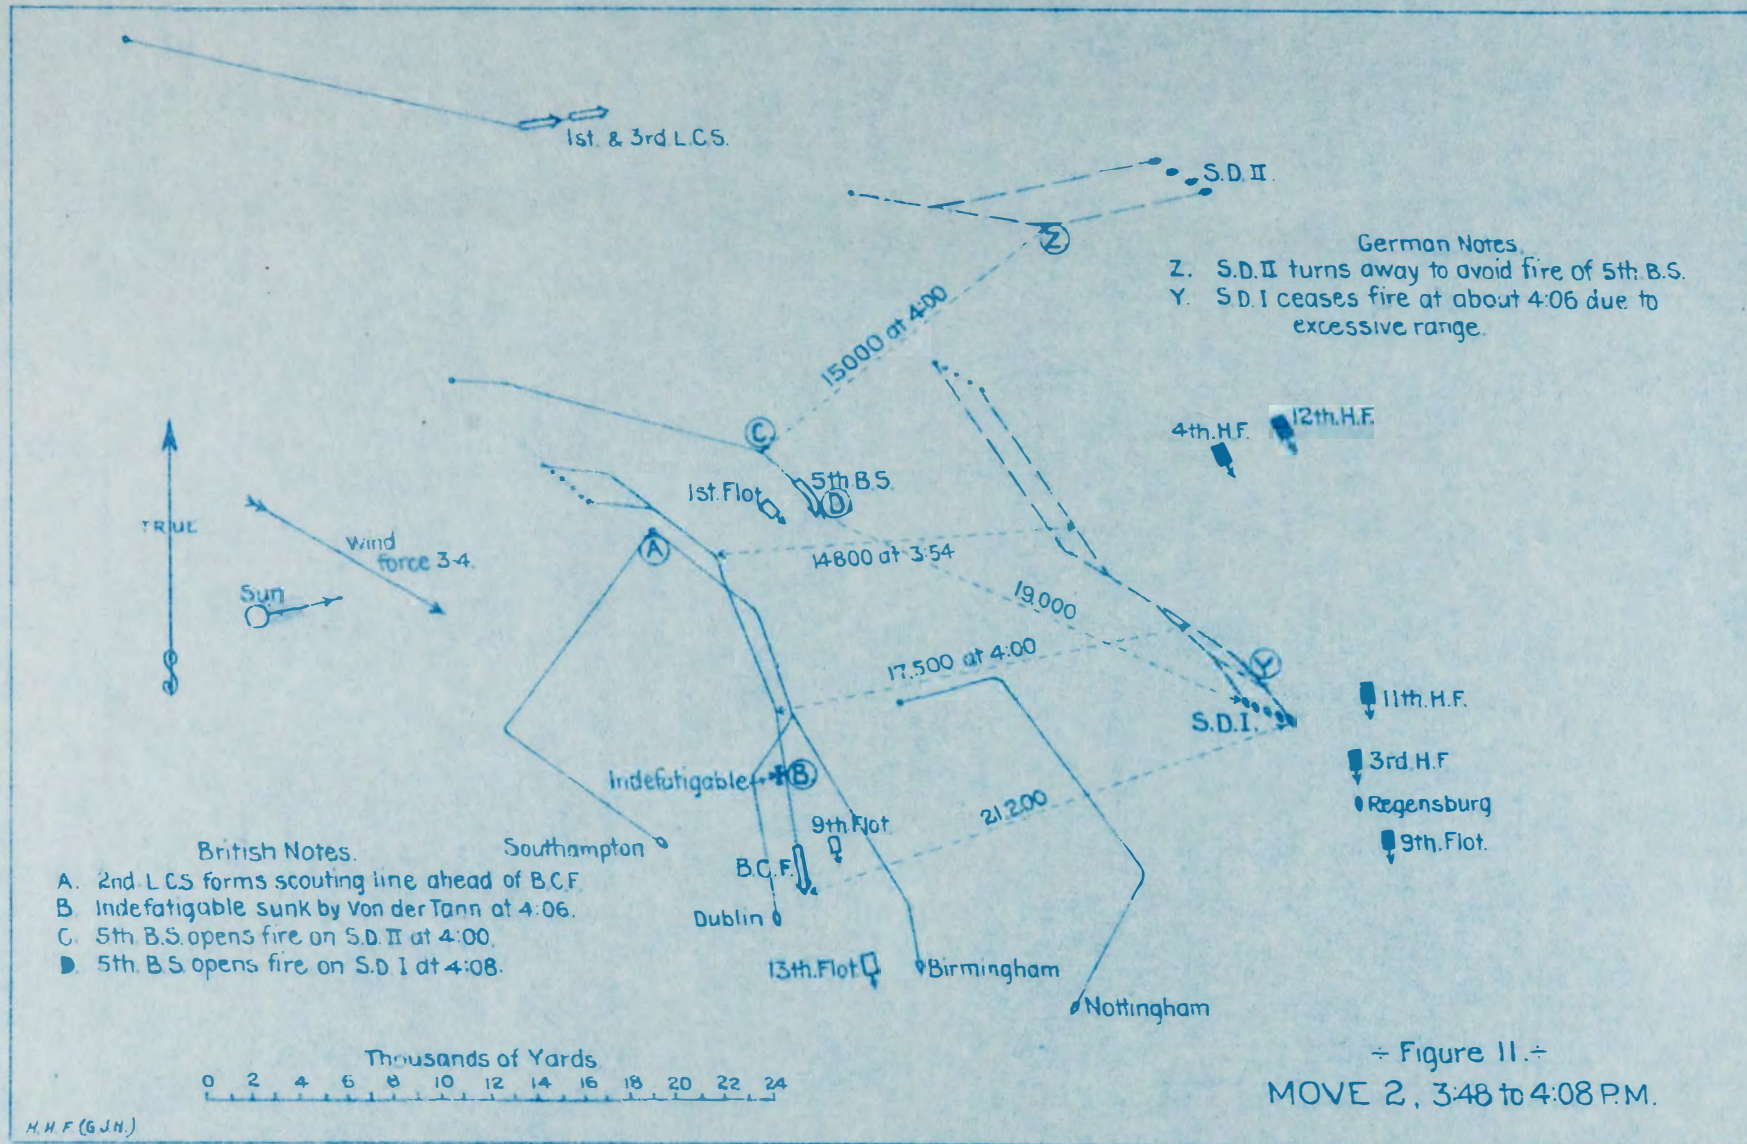 1st. & 3rd L.C.S.
S.D. II.
Z
German Notes.
Z. S.D. II turns away to avoid fire of 5th. B.S.
Y. S.D. I ceases fire at about 4:06 due to
excessive range.
15000 at 4:00
C
4th. H.F.
12th. H.F.
5th B.S.
1st. Flot.
D
TRUE
Wind
force 3-4.
A
14800 at 3:54
Sun
19,000
17,500 at 4:00
Y
S.D.I.
11th. H.F.
3rd. H.F.
Regensburg
9th. Flot.
Indefatigable
B
21,200
9th. Flot.
Southampton
B.C.F.
Dublin
13th. Flot.
Birmingham
Nottingham
British Notes.
A. 2nd. L.C.S forms scouting line ahead of B.C.F.
B. Indefatigable sunk by Von der Tann at 4:06.
C. 5th. B.S. opens fire on S.D. II at 4:00.
D. 5th. B.S. opens fire on S.D. I at 4:08.
Thousands of Yards
0 2 4 6 8 10 12 14 16 18 20 22 24
÷ Figure 11. ÷
MOVE 2, 3:48 to 4:08 P.M.
H.H.F (G.J.H.)